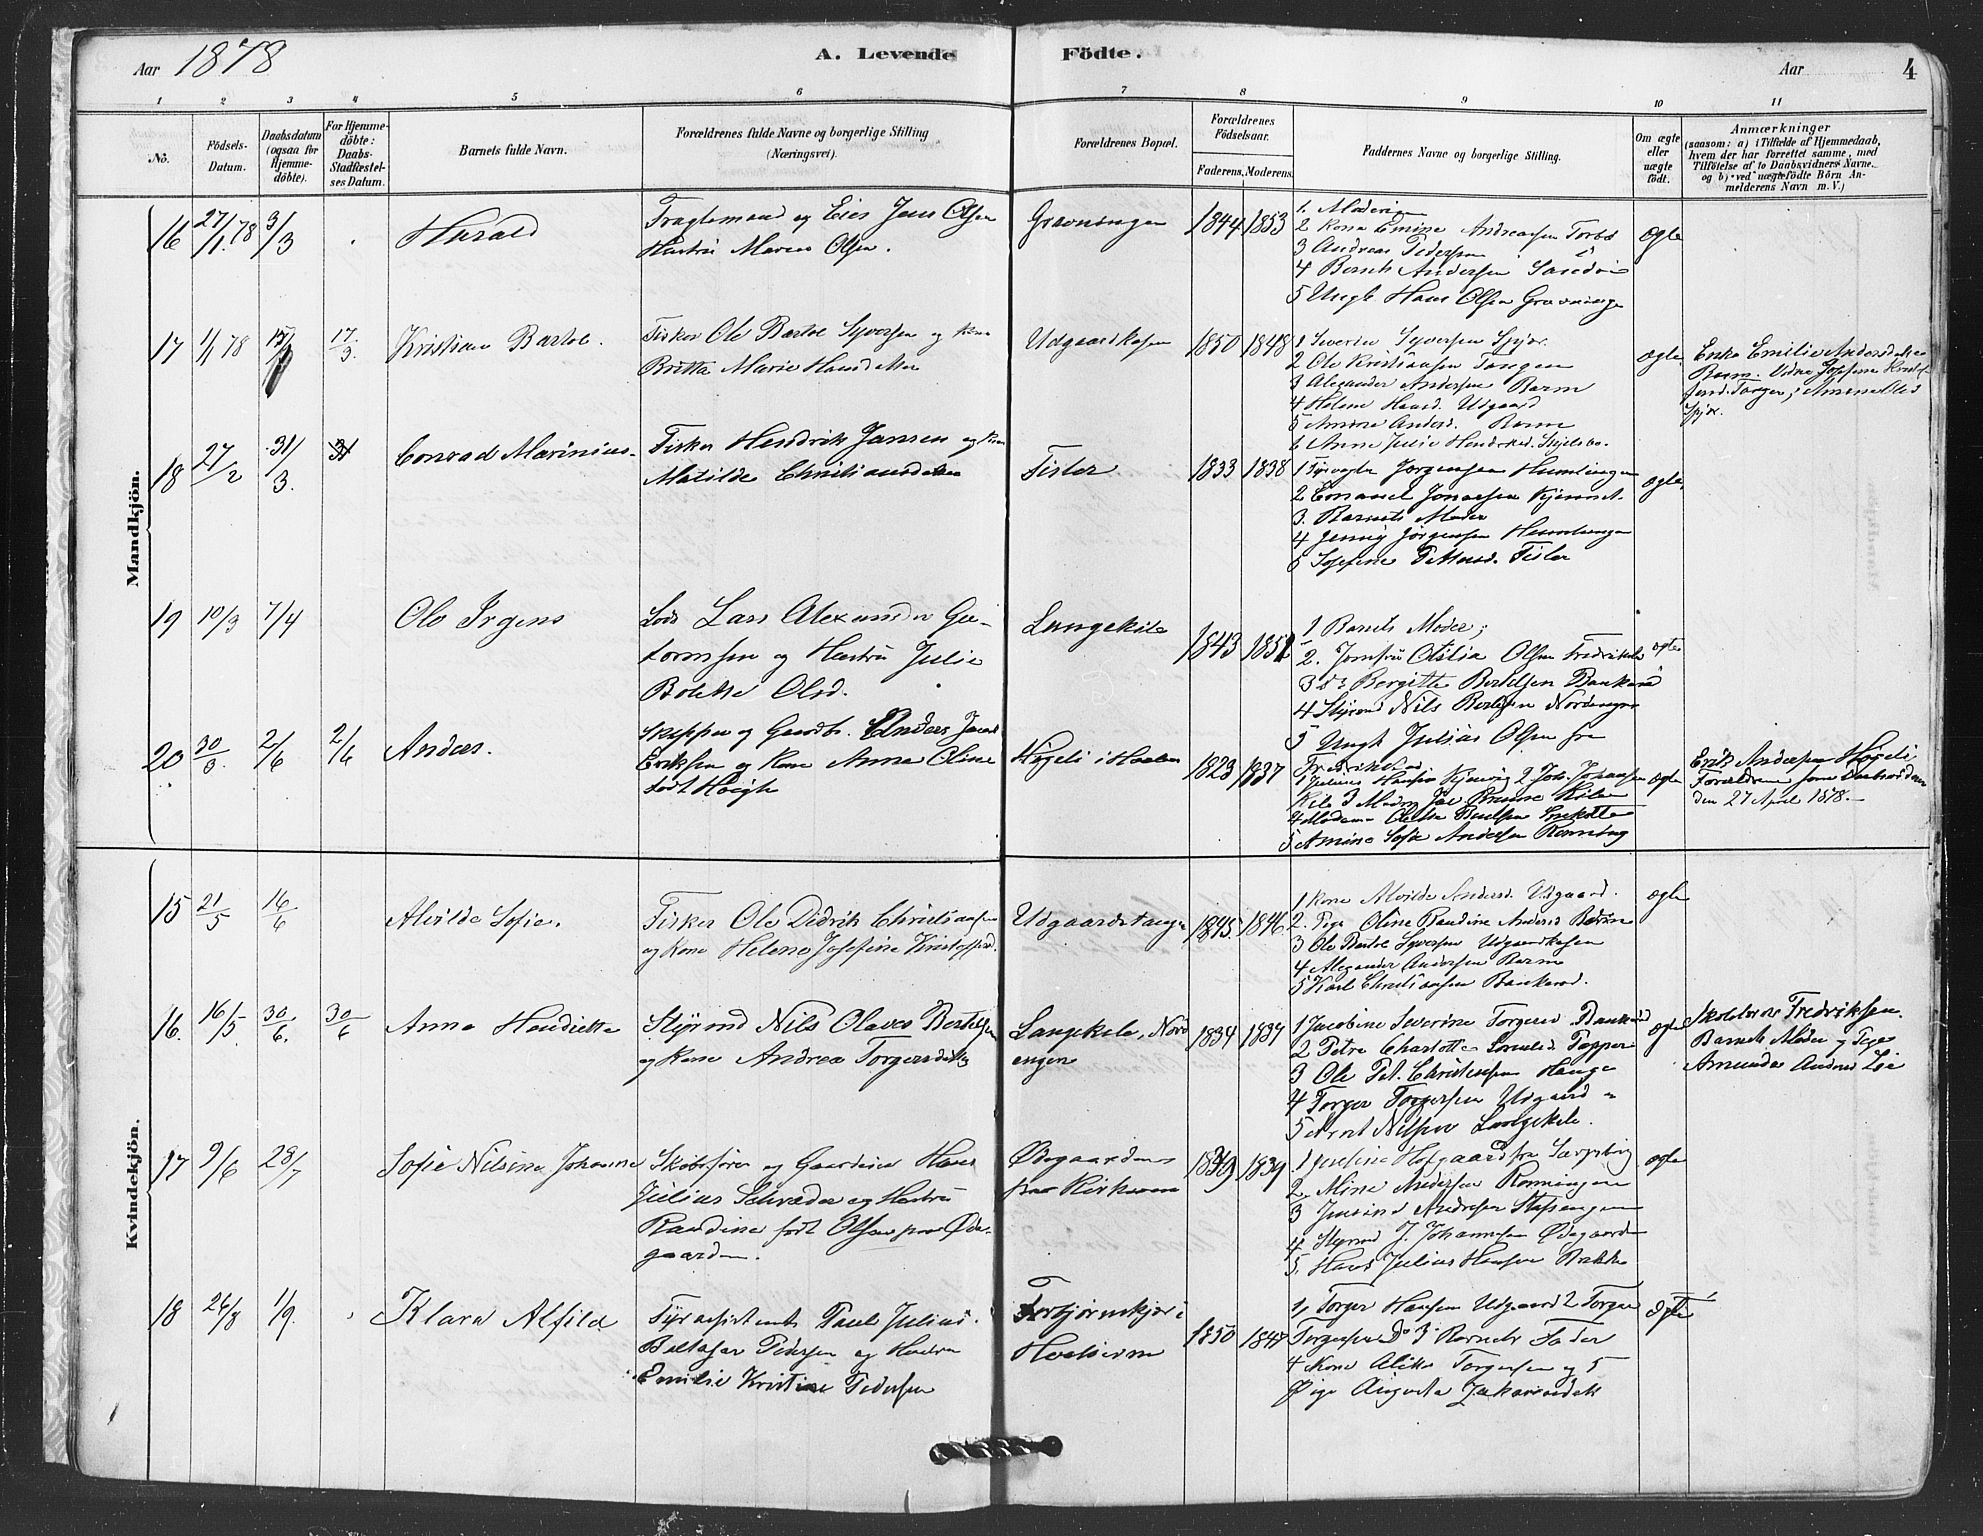 Aar 1878
A. Levende Födte.
Aar 4
1 2 3 4 5 6 7 8 9 10 11
No.
Födsels-Datum.
Daabsdatum (ogsaa for Hjemme-döbte).
For Hjemme-döbte: Daabs-Stadfæstel-ses Datum.
Barnets fulde Navn.
Forældrenes fulde Navne og borgerlige Stilling
(Næringsvei).
Forældrenes Bopæl.
Forældrenes Födselsaar.
Faderens. Moderens.
Faddernes Navne og borgerlige Stilling.
Om ægte eller uægte födt.
Anmærkninger
(saasom: a) i Tilfælde af Hjemmedaab,
hvem der har forrettet samme, med
Tilföielse af to Daabsvidners Navne.
og b) ved uægtefödte Börn An-
melderens Navn m. V.)
Mandkjön.
16 27/1 78 3/3 Harald
Fragtemand og Eier Jens Olsen
Hustru Maren Olsen.
Gravningen 1844 1853
1. Moderen
2 Kone Emine Andreasen Torbø
3 Andreas Pedersen
4 Bernts Andersen
5 Ungk Hans Olsen Gravningen
ægte
17 1/1 78 17/3. Kristian Bartol.
Fisker Ole Bartol Syversen og Kone
Britta Marie Hansdatter
Udgaardkasen 1850 1848
1 Severin Syversen Spjær.
2 Ole Kristiansen Tangen
3 Alexander Andersen Barm
4 Helene Hansd. Udgaard
5 Amine Andersd. Barm
6 Anne Julie Hendriksd.
ægte
Enke Emilie Andersdatter
Barm. Vidne Josefine Kristof-
fersd. Tangen; Amine Olsd
Spjær.
18 27/2 31/3. Conrad Marinius.
Fisker Hendrik Jansen og Kone
Matilde Christiansdatter
Tisler 1833 1838
1 Jørgensen Humlingen
2 Emanuel Jonassen
3. Barnets Moder
4 Jenny Jørgensen Humlungen
5 Josefine Pettersd. Tisler
ægte
19 10/3 7/4 Ole Irgens
Lods Lars Alexander Gu-
tormsen og Hustru Julie
Bolette Olsd.
Langekile 1843 1852
1 Barnets Moder;
2. Jomfru Otilia Olsen Fredrikshald
3 do Bergitte Bertelsen Bankerød
4 Styrmd Nils Bertelsen Nordengen
5 Ungk Julius Olsen fra
Fredrikshald
ægte
20 30/3. 2/6 2/6 Anders.
Skipper og Gaardbr. Anders Jacob
Eriksen og Kone Anna Oline
født Høigh
Høgeli i Hvaler 1823 1837
1 Julius Hansen 2 Joh. Johansen
Kile 3
4 Madam Olette Buelsen
5 Amine Sofie Andersen
ægte
Erik Andersen Høgeli;
Forældrene
den 27 April 1878.
Kvindekjön.
15 21/5 16/6 Alvilde Sofie.
Fisker Ole Didrik Christiansen
og Kone Helene Josefine Kristoffersd.
Udgaardstangen 1845 1846
1 Kone Alvilde Andersd. Udgaard.
2. Pige Oline Randine Andersd Barm
3 Ole Bartol Syversen Udgaardkasen
4 Alexander Andersen Barm
5 Karl Christiansen Bankerød.
ægte
16. 16/5. 30/6. 30/6 Anna Hendrette
Styrmd Nils Olaves Bertelsen
og Kone Andrea Torgersdatter
Langekile, Nord
engen 1834 1837
1 Jacobine Severine Torgersd Bankerød
2 Petra Charlotte Tapper
3 Ole Pet. Christensen Hauge
4 Torger Torgersen Udgaard
5 Arnt Nilsen Langekile.
ægte
Skolelærer Fredriksen.
Barnets Moder og Pige
Amunda Andersd Lie
17 9/6 28/7 Sofie Nilsine Johanne
Skibsfører og Gaardeier Hans
Julius Schrøder og Hustru
Randine født Olsen paa Øde-
gaarden.
Ødegaarden
paa Kirkøen 1839 1839
1 Josefine Hofgaard fra Sarpsborg
2. Mine Andersen Rønningen
3 Justine Andersen
4 Styrmd J. Johannsen Ødegaarden
5. Hans Julius Hansen Bakke
ægte
18 26/8 1/9. Klara Alfilda
Fyrassistent Paul Julius
Baltasar Pedersen og Hustru
Emilie Kristine Pedersen
Torbjørnskjær i
Hvalerne 1850 1847
1, Torger Hansen Udgaard 2 Torger
Torgersen Do 3 Barnets Fader
4 Kone Alette Torgersen og 5
Pige Augusta Zakariasdatter
ægte